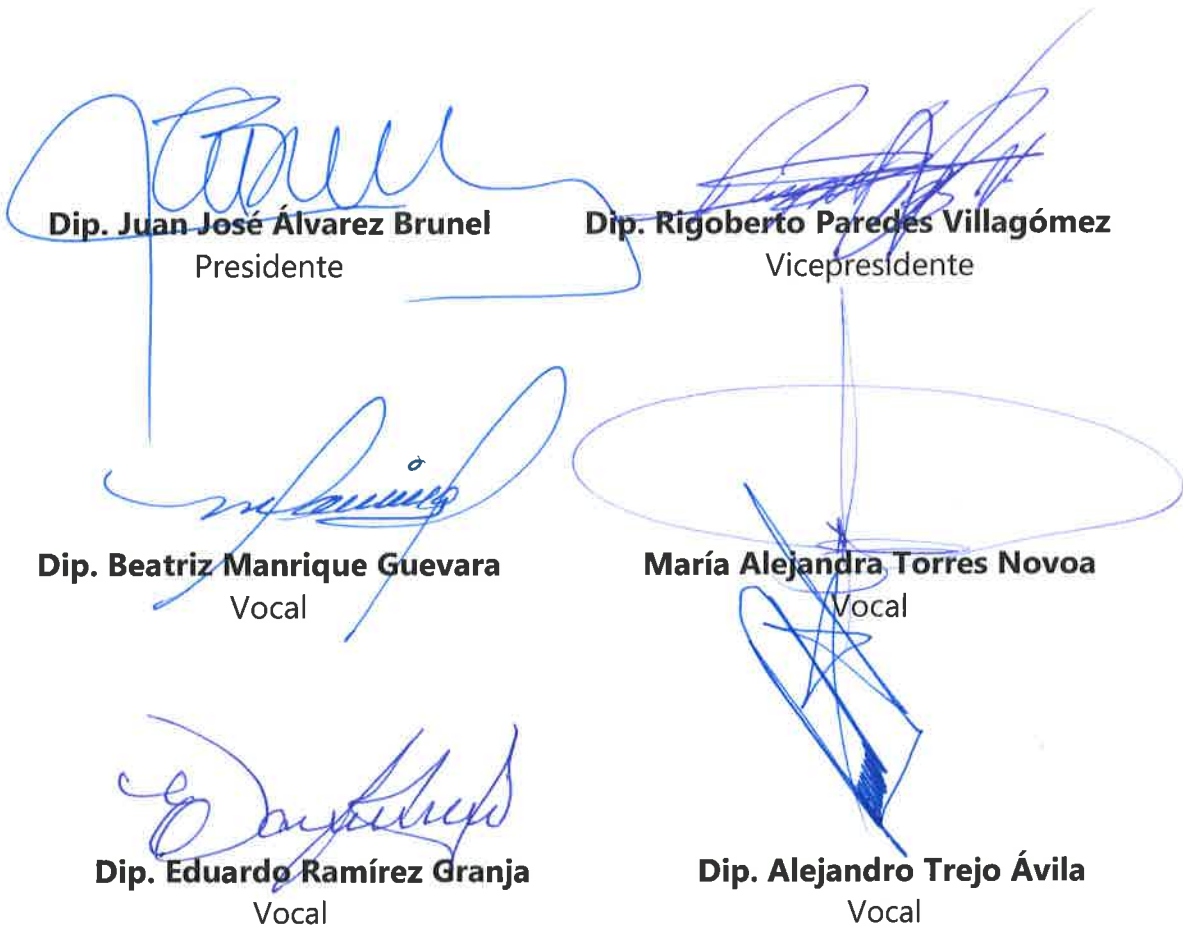 Dip. Juan José Álvarez Brunel
Presidente
Dip. Rigoberto Paredes Villagómez
Vicepresidente
Dip. Beatriz Manrique Guevara
Vocal
María Alejandra Torres Novoa
Vocal
Dip. Eduardo Ramírez Granja
Vocal
Dip. Alejandro Trejo Ávila
Vocal